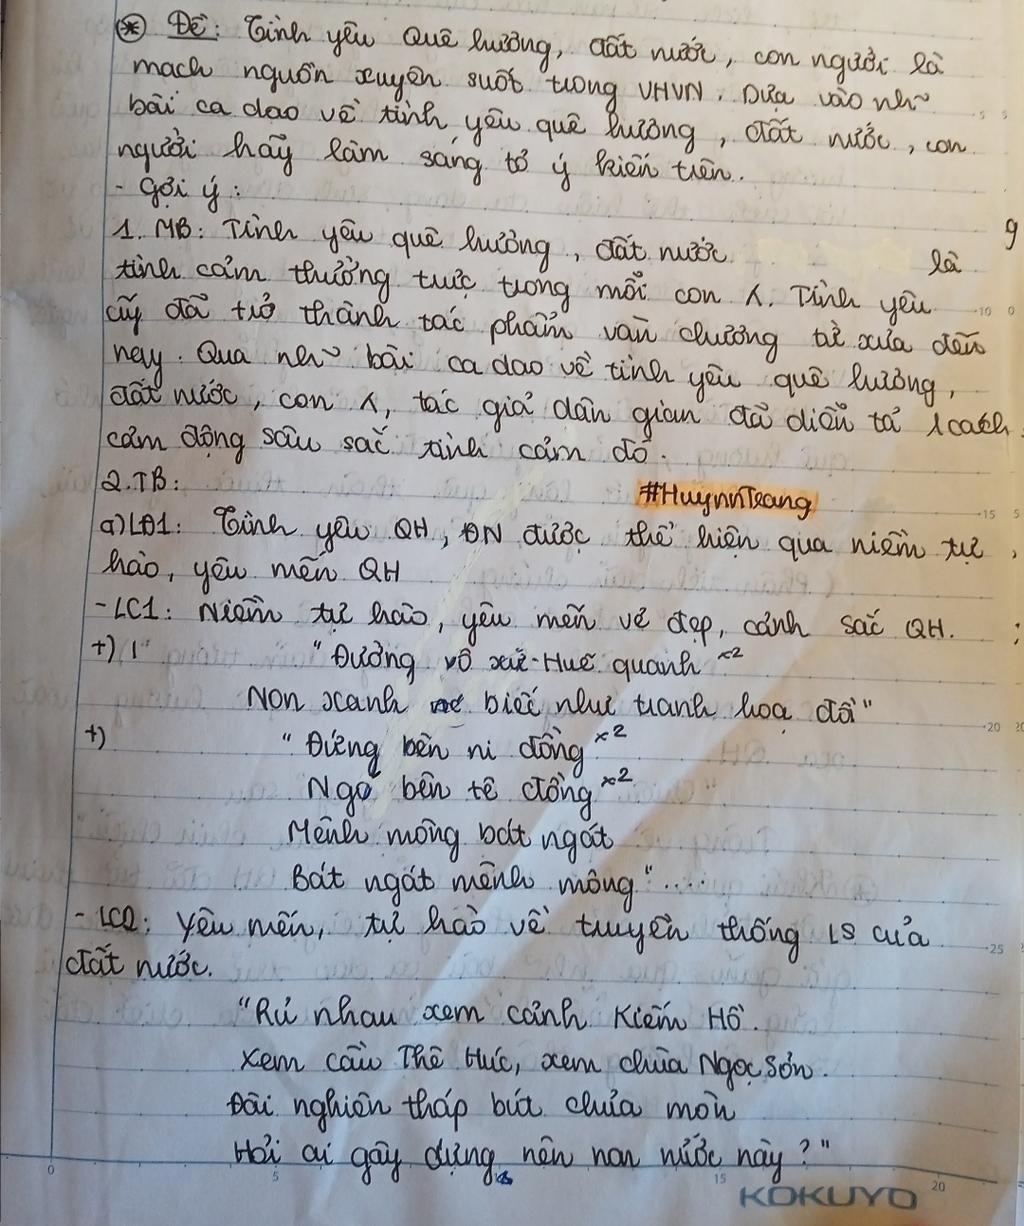 (*) Đề: Tình yêu quê hương, đất nước, con người là
mạch nguồn xuyên suốt trong VHVN. Dựa vào nh~
bài ca dao về tình yêu quê hương, đất nước, con
người hãy làm sáng tỏ ý kiến trên.
- Gợi ý:
1. MB: Tình yêu quê hương, đất nước là
tình cảm thường trực trong mỗi con λ. Tình yêu
ấy đã trở thành tác phẩm văn chương từ xưa đến
nay. Qua nh~ bài ca dao về tình yêu quê hương,
đất nước, con λ, tác giả dân gian đã diễn tả 1 cách
cảm động sâu sắc tình cảm đó.
2. TB:
#HuynnTrang
a) LĐ1: Tình yêu QH, ĐN được thể hiện qua niềm tự
hào, yêu mến QH
- LC1: Niềm tự hào, yêu mến vẻ đẹp, cảnh sắc QH.
+) "Đường vô xứ Huế quanh x2
Non xanh biếc như tranh hoạ đồ"
+) "Đứng bên ni đồng x2
Ngó bên tê đồng x2
Mênh mông bát ngát
Bát ngát mênh mông"....
- LC2: Yêu mến, tự hào về truyền thống LS của
đất nước.
"Rủ nhau xem cảnh Kiếm Hồ.
Xem cầu Thê Húc, xem chùa Ngọc Sơn.
Đài nghiên tháp bút chưa mòn
Hỏi ai gây dựng nên non nước này?"
0 5 15 20
KOKUYO